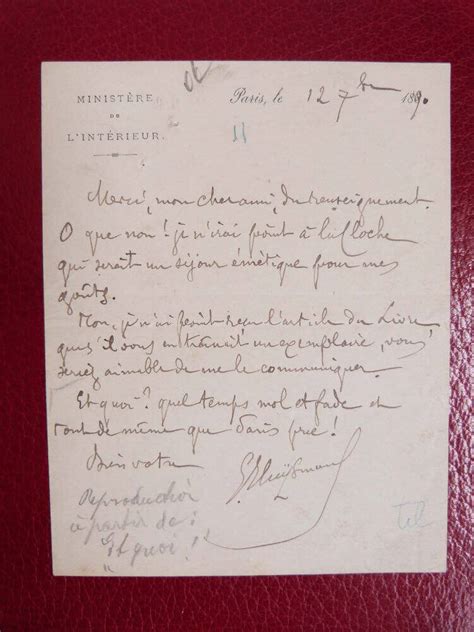 MINISTÈRE
DE
L'INTÉRIEUR.
Paris, le 12 7bre 1890
11
Merci, mon cher ami, du renseignement.
O que non! je n'irai point à la Cloche
qui serait un séjour émétique pour mes
goûts.
Non, je n'ai point reçu l'article du Livre,
que s'il vous en un exemplaire, vous
seriez aimable de me le communiquer.
Et quoi? quel temps mol et fade et
tout de même que Paris pue!
Bien votre
GHuysmans
Reproduction
à partir de:
"Et quoi!"